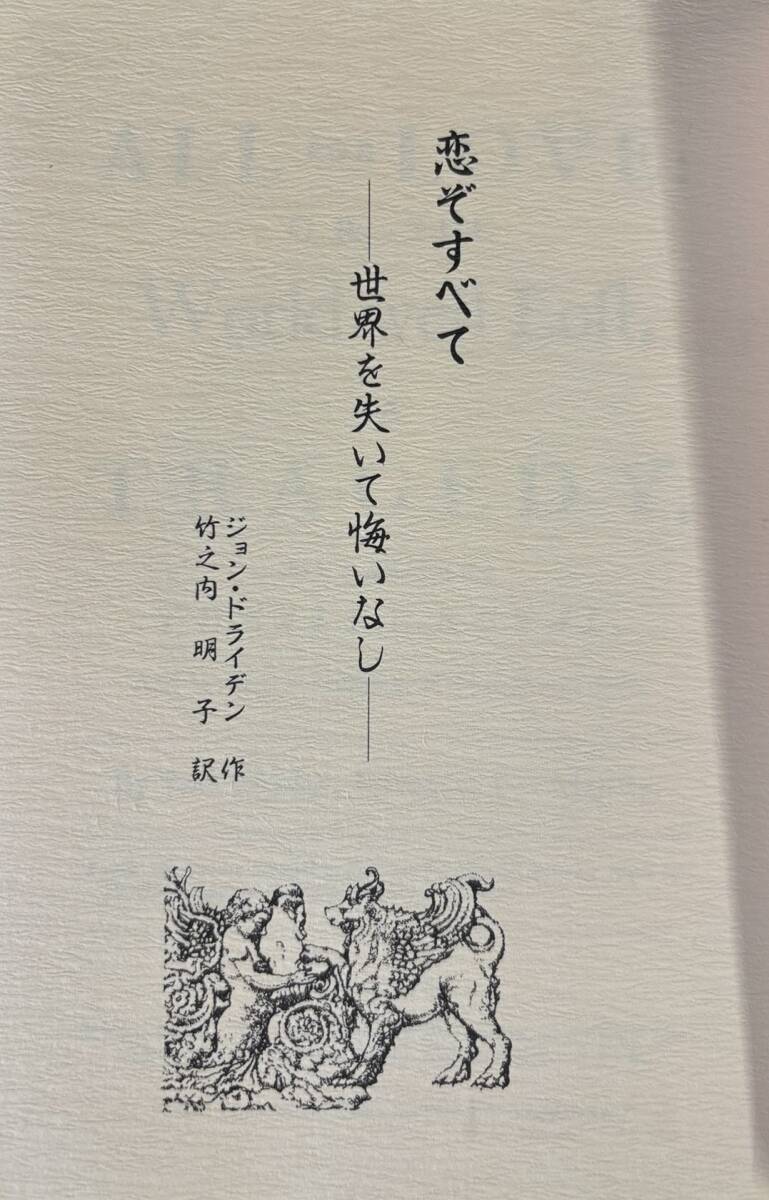 恋ぞすべて
――世界を失いて悔いなし――
ジョン・ドライデン 作
竹之内 明子 訳